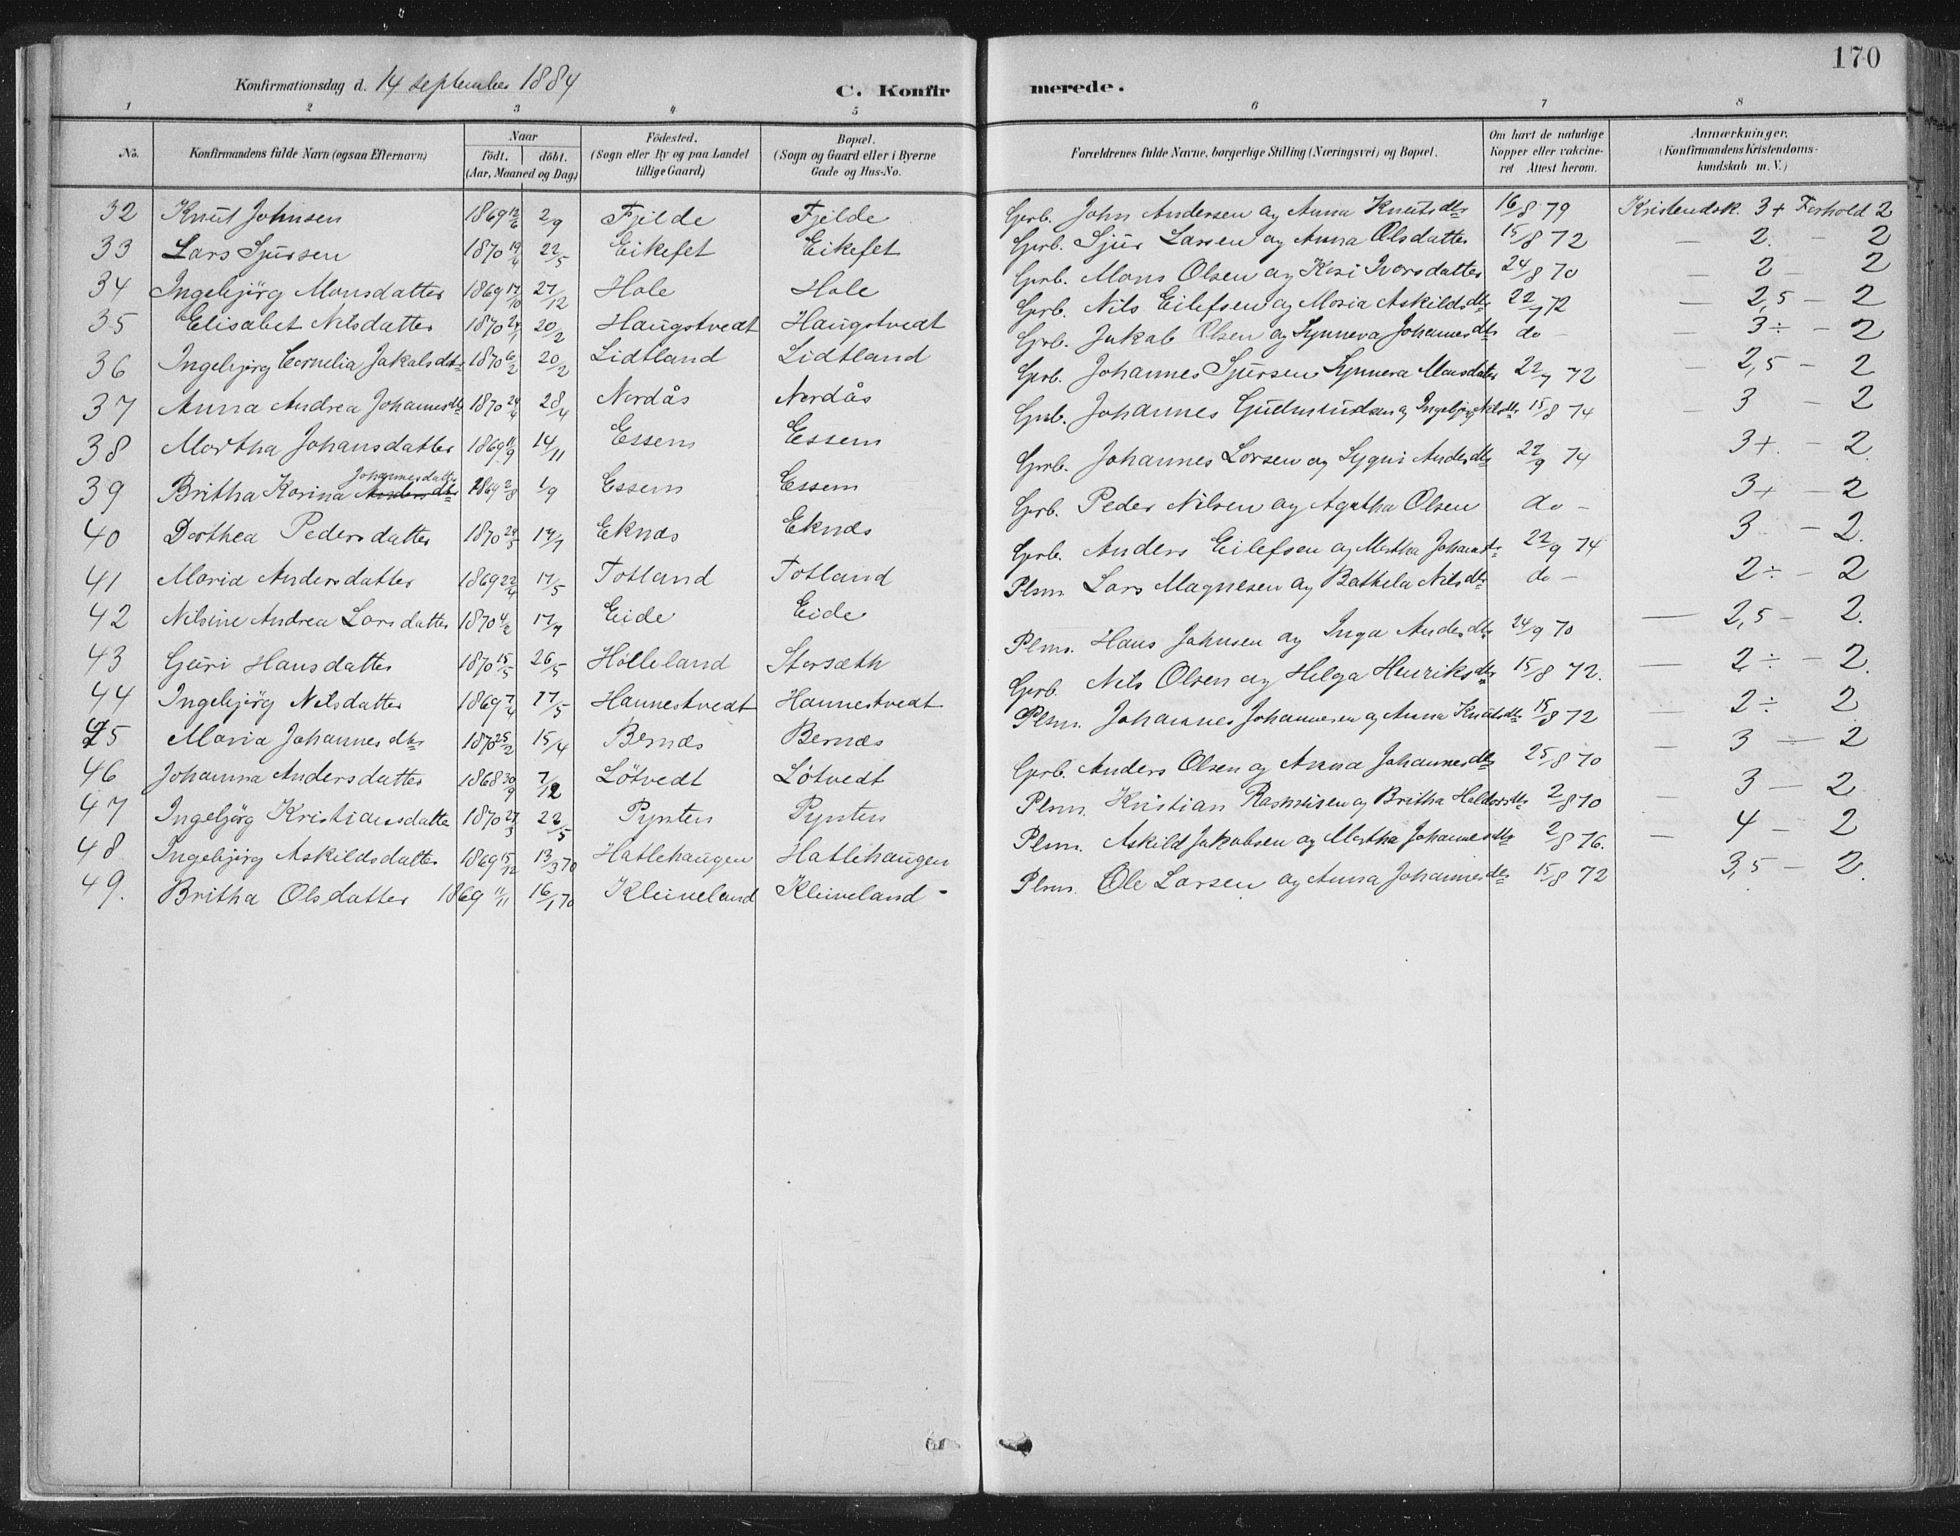 170
Konfirmationsdag d. 14 september 1884
C. Konfirmerede.
1 2 3 4 5 6 7 8
No. Konfirmandens fulde Navn (ogsaa Efternavn) Naar født. døbt. (Aar, Maaned og Dag) Fødested. (Sogn eller By og paa Landet tillige Gaard) Bopæl. (Sogn og Gaard eller i Byerne Gade og Hus-No. Forældrenes fulde Navne, borgerlige Stilling (Næringsvei) og Bopæl. Om havt de naturlige Kopper eller vakcineret Attest herom. Anmærkninger. (Konfirmandens Kristendomskundskab m. V.)
32 Knut Johnsen 1869 12/6 2/9 Fjelde Fjelde Gprb. John Andersen og Anna Knutsdtr 16/8 79 Kristendsk. 3+ Forhold 2
33 Lars Sjursen 1870 19/4 22/5 Eikefet Eikefet Gprb. Sjur Larsen og Anna Olsdatter 15/8 72 — 2. — 2
34 Ingebjörg Monsdatter 1869 17/10 27/12 Hole Hole Gprb. Mons Olsen og Kari Iversdatter 24/8 70 — 2 — 2
35 Elisabet Nilsdatter 1870 27/1 20/2 Haugstvedt Haugstvedt Gprb. Nils Eilefsen og Maria Askildsdtr 22/7 72 — 2,5 — 2
36 Ingebjørg Cornelia Jakobsdtr 1870 6/2 20/2 Lidtland Lidtland Gprb. Jakob Olsen og Synneva Johannesdtr do — 3 ÷ — 2
37 Anna Andrea Johannesdtr 1870 24/4 28/4 Nordås Nordås Gprb. Johannes Sjursen Synneva Monsdatter 22/7 72 — 2,5 — 2
38 Martha Johansdatter 1869 11/9 14/11 Essem Essem Gprb. Johannes Gudmundsen og Ingebjørg Nilsdtr 15/8 74 — 3 — 2
39 Britha Karina Andersdtr Johannesdatter 1869 2/8 1/9 Essem Essem Gprb. Johannes Larsen og Sygni Andersdtr 22/9 74 3+ — 2.
40 Dorthea Pedersdatter 1870 24/5 17/7 Eknæs Eknæs Gprb. Peder Nilsen og Agatha Olsen do — 3+ — 2
41 Maria Andersdatter 1869 22/4 17/5 Totland Totland Gprb. Anders Eilefsen og Martha Johansdtr 22/9 74 3 — 2.
42 Nilsine Andrea Larsdatter 1870 4/2 17/7 Eide Eide Plsm. Lars Magnesen og Bothela Nilsdtr do — 2 ÷ — 2
43 Guri Hansdatter 1870 15/5 26/5 Hölleland Storsæth Plsm. Hans Johnsen og Inga Andersdtr 24/9 70 — 2,5 — 2.
44 Ingebjörg Nilsdatter 1869 7/4 17/5 Hannestvedt Hannestvedt Gprb. Nils Olsen og Helga Henriksdtr 15/8 72. — 2 ÷ — 2.
45 Maria Johannesdtr 1870 25/2 15/4 Bernæs Bernæs Plsm. Johannes Johannesen og Anna Knutsdtr 15/8 72 — 2 ÷ 2.
46 Johanna Andersdatter 1868 30/9 7/12 Lötvedt Lötvedt Gprb. Anders Olsen og Anna Johannesdtr 25/8 70 — 3 — 2
47 Ingebjörg Kristiansdatter 1870 27/3 22/5 Pynten Pynten Plsm. Kristian Rasmusen og Britha Haldorsdtr 2/8 70 — 3 — 2.
48 Ingebjörg Askildsdatter 1869 15/12 13/3 70 Hatlehaugen Hatlehaugen Plsm. Askild Jakobsen og Martha Johannesdtr 2/8 76. — 4 — 2
49. Britha Olsdatter 1869 11/11 16/1 70 Kleiveland Kleiveland - Plsm. Ole Larsen og Anna Johannesdtr 15/8 72 3,5 — 2.